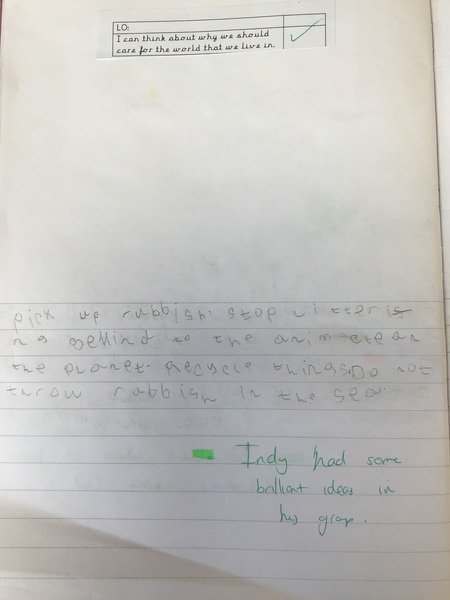 LO:
I can think about why we should
care for the world that we live in.
pick up rubbish. stop litteris
ng to the anim clean
the planet. Recycle things Do not
throw rubbish in the sea.
Indy had some
brilliant ideas in
his group.